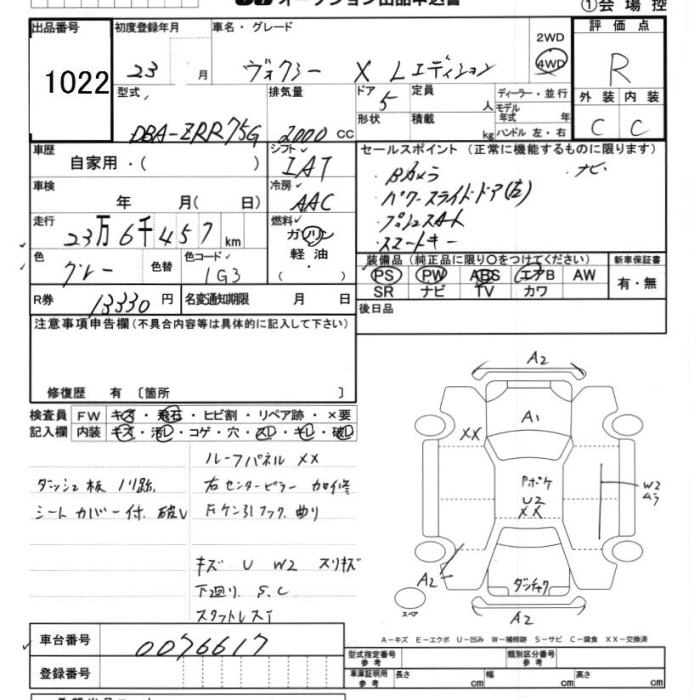 オークション出品申込書 ①会場控
出品番号 初度登録年月 車名・グレード 評価点
1022
23 月 ヴォクシー X Lエディション 2WD 4WD R
型式 排気量 ドア 定員 ディーラー・並行 外装 内装
5 人 モデル年式 年
DBA-ZRR75G 2000 cc 形状 積載 kg ハンドル 左・右 C C
車歴 シフト セールスポイント (正常に機能するものに限ります)
自家用・( ) IAT ・Bカメラ ・ナビ
車検 冷房 ・パワースライドドア(左)
年 月( 日) AAC ・プッシュスタート
走行 燃料 ・スマートキー
23万6千457 km ガソリン
軽油
( ・ )
色 色替 色コード 装備品 (純正品に限り○をつけてください) 新車保証書
グレー 1G3 PS PW ABS エアB AW 有・無
SR ナビ TV カワ
R券 13330円 名変通知期限 月 日 後日品
注意事項申告欄(不具合内容等は具体的に記入して下さい)
修復歴 有 〔箇所 〕
検査員 FW キズ・飛石・ヒビ割・リペア跡・×要
記入欄 内装 キズ・汚レ・コゲ・穴・スレ・キレ・破レ
ルーフパネル XX
ダッシュ板 ハリ跡 右センターピラー 加修
シートカバー付 破レ 曲り
キズ U W2 スリキズ
下廻り S.C
スタットレス
A2
A1
XX
Pボケ
U2
XX
W2
A2
ダッチャク
スペア
A2
A-キズ E-エクボ U-凹み W-補修跡 S-サビ C-腐食 XX-交換済
車台番号 0076617
登録番号
型式指定番号 参考 類別区分番号 参考
車庫証明用 参考 長さ cm 幅 cm 高さ cm